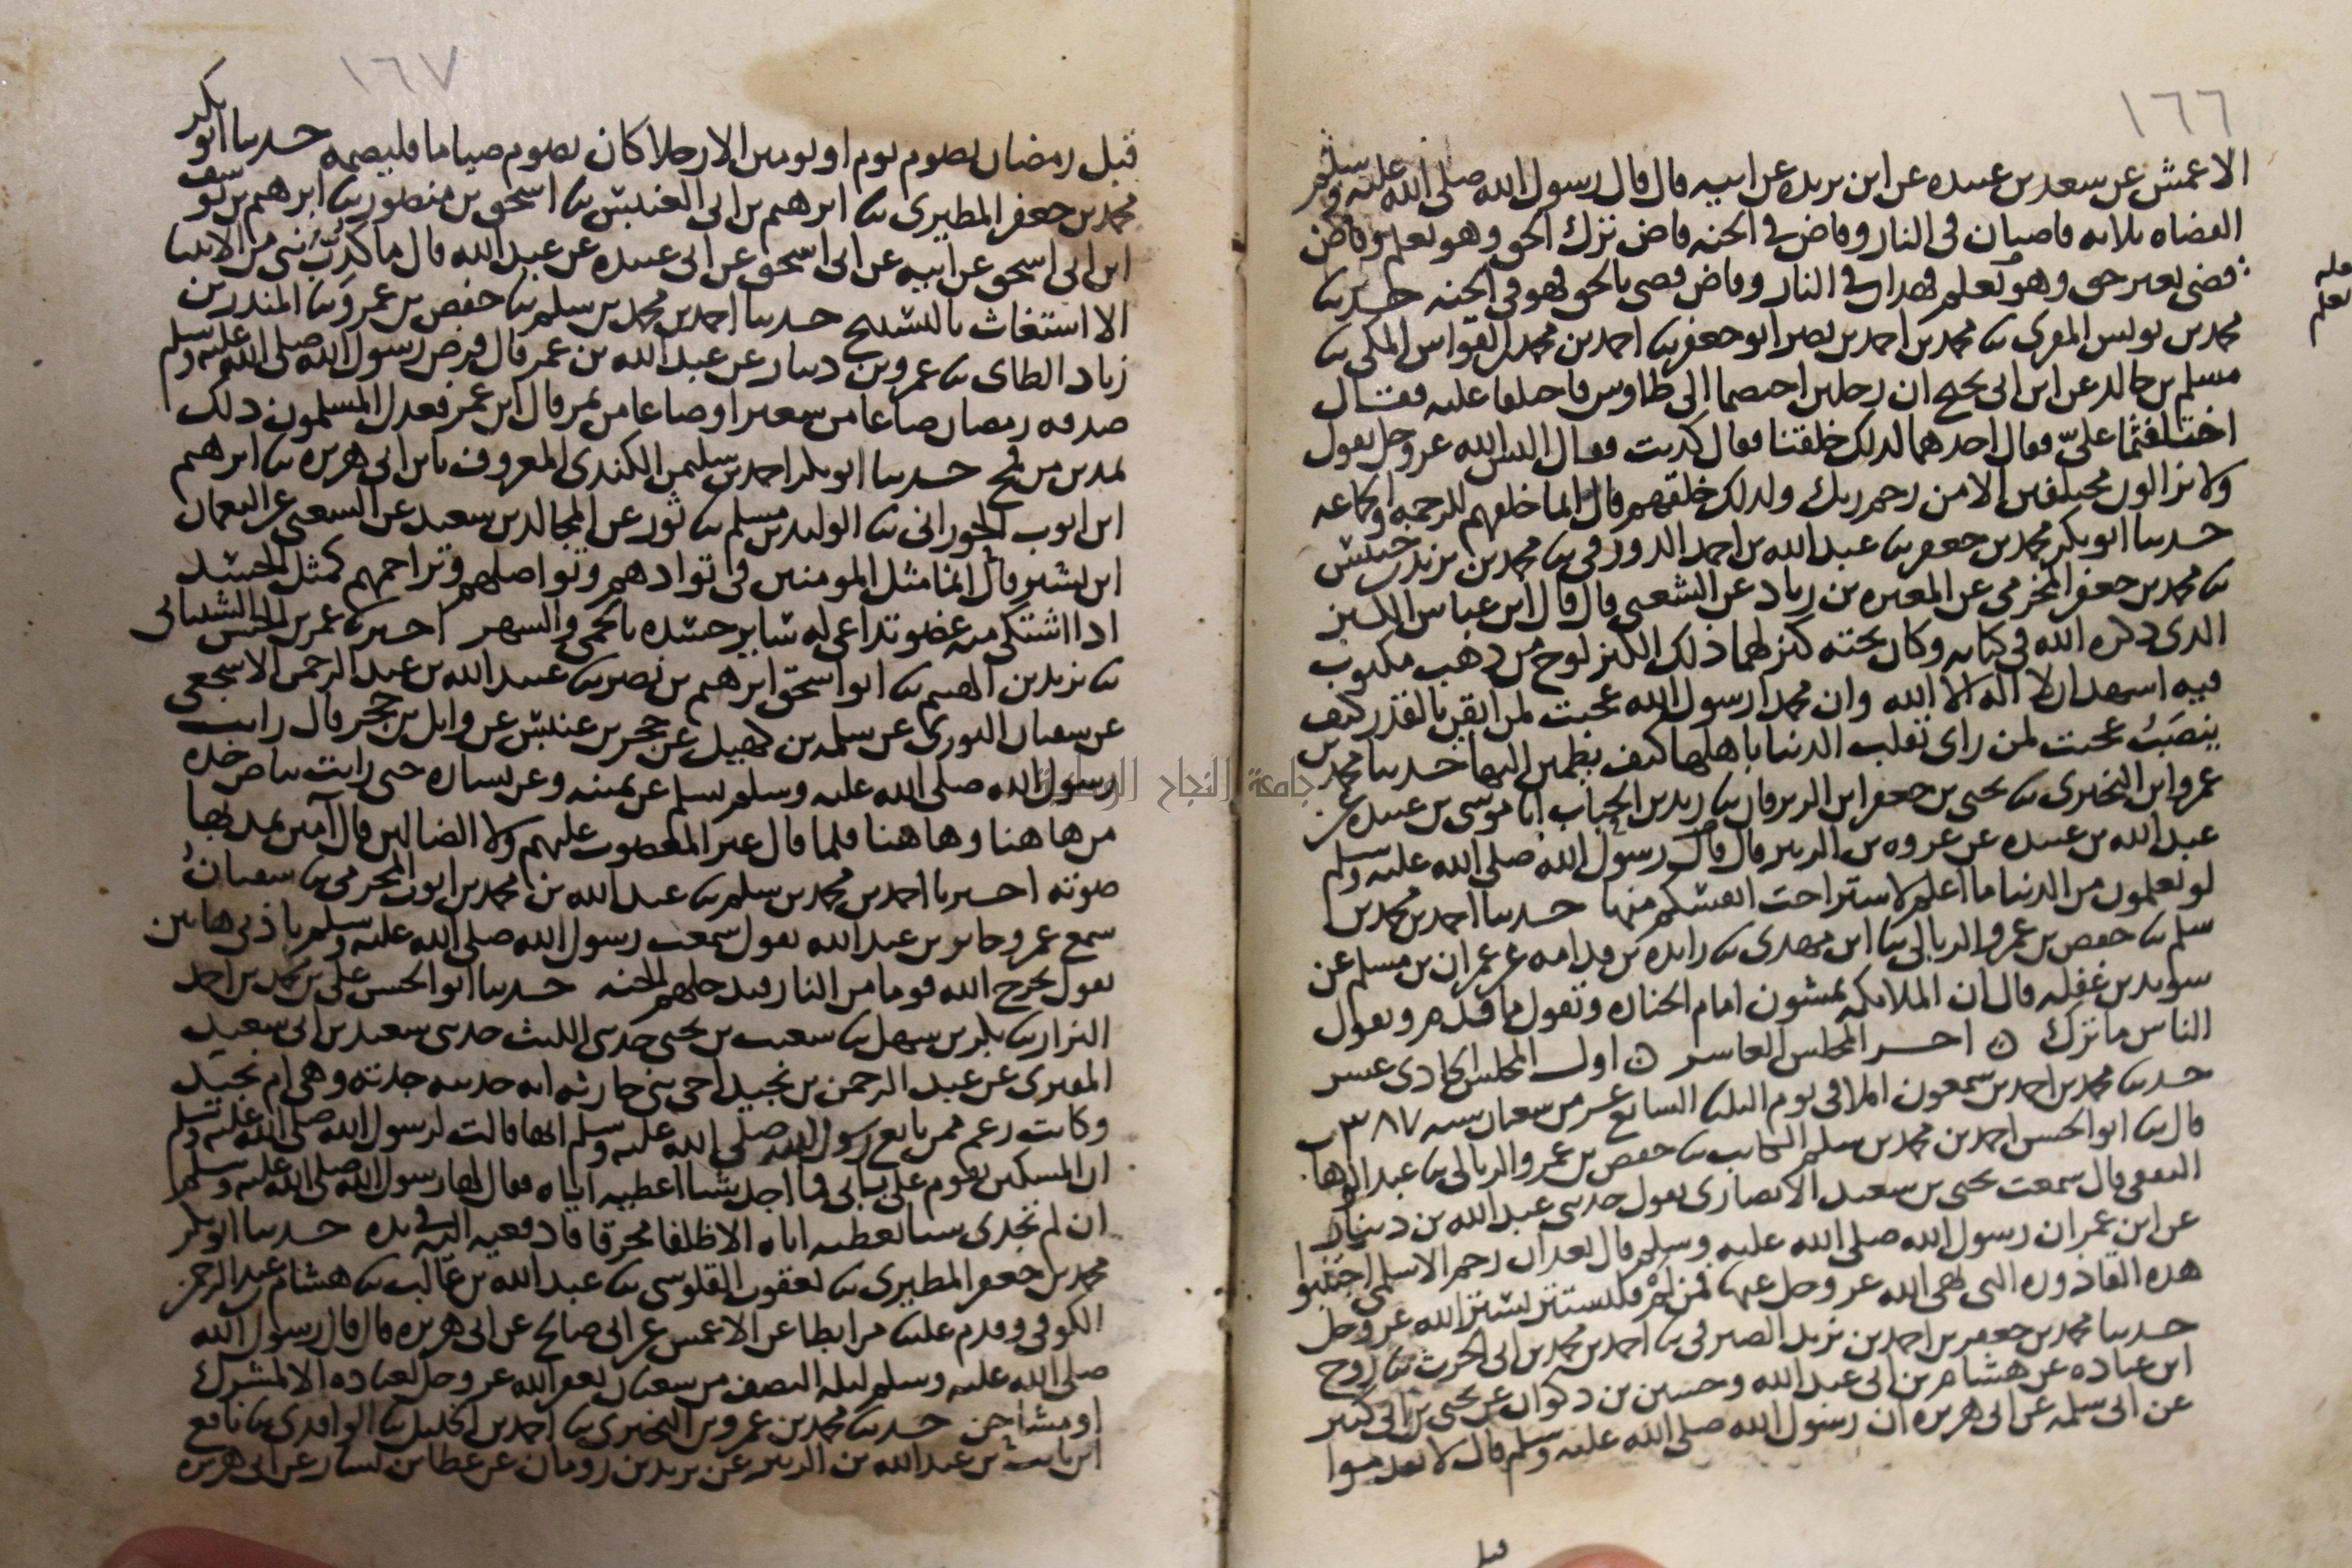 ١٦٦
الاعمش عن سعد بن عبيده عن ابن بريده عن ابيه قال قال رسول الله صلى الله عليه وسلم
القضاه ثلاثه قاضيان في النار وقاض في الجنه قاض ترك الحق وهو يعلم وقاض
قضى بغير حق وهو يعلم فهذان في النار وقاض قضى بالحق فهو في الجنه حدثنا
محمد بن يونس المقرى ثنا محمد بن احمد بن نصر ابو جعفر ثنا احمد بن محمد القواس المكي ثنا
مسلم بن خالد عن ابن ابي نجيح ان رجلين اختصما الى طاوس فاختلفا عليه فقال
اختلفتما علي فقال احدهما لذلك خلقنا فقال كذبت فقال اليس الله عز وجل يقول
ولا يزالون مختلفين الا من رحم ربك ولذلك خلقهم قال انما خلقهم للرحمه والجماعه
حدثنا ابو بكر محمد بن جعفر ثنا عبد الله بن احمد الدورقي ثنا محمد بن يزيد بن خنيش
ثنا محمد بن جعفر المخزمي عن المغيره بن زياد عن الشعبي قال قال ابن عباس الكنز
الذي ذكره الله في كتابه وكان تحته كنز لهما ذلك الكنز لوح من ذهب مكتوب
فيه اشهد ان لا اله الا الله وان محمدا رسول الله عجبت لمن ايقن بالقدر كيف
ينصب عجبت لمن راى تقلب الدنيا باهلها كيف يطمئن اليها حدثنا محمد بن
عمرو ابن البختري ثنا يحيى بن جعفر ابن الزبرقان ثنا زيد بن الحباب انا موسى بن عبيده عن
عبد الله بن عبيده عن عروه بن الزبير قال قال رسول الله صلى الله عليه وسلم
لو تعلمون من الدنيا ما اعلم لاستراحت انفسكم منها حدثنا احمد بن محمد بن
سلم ثنا حفص بن عمرو الربالي ثنا ابن مهدي ثنا زايده بن قدامه عن عمران بن مسلم عن
سويد بن غفله قال ان الملايكه يمشون امام الجنازه وتقول ما قدم ويقول
الناس ما ترك ۞ اخر المجلس العاشر ۞ اول المجلس الحادي عشر
حدثنا محمد بن احمد بن سمعون املا في يوم الثلثا السابع عشر من شعبان سنه ٣٨٧
قال ثنا ابو الحسن احمد بن محمد بن سلم الكاتب ثنا حفص بن عمرو الربالي ثنا عبد الوهاب
الثقفي قال سمعت يحيى بن سعيد الانصاري يقول حدثني عبد الله بن دينار
عن ابن عمر ان رسول الله صلى الله عليه وسلم قال بعد ان رجم الاسلمي اجتنبوا
هذه القاذوره التي نهى الله عز وجل عنها فمن الم فليستتر بستر الله عز وجل
حدثنا محمد بن جعفر بن احمد بن يزيد الصيرفي ثنا احمد بن محمد بن ابي الحرث ثنا روح
ابن عباده عن هشام بن ابي عبد الله وحسين بن ذكوان عن يحيى بن ابي كثير
عن ابي سلمه عن ابي هريره ان رسول الله صلى الله عليه وسلم قال لا تقدموا
قبل
١٦٧
قبل رمضان بصوم يوم او يومين الا رجلا كان يصوم صياما فليصمه حدثنا ابو بكر
محمد بن جعفر المطيري ثنا ابرهيم بن ابي العنبس ثنا اسحق بن منصور ثنا ابرهيم بن يوسف
ابن ابي اسحق عن ابيه عن ابي اسحق عن ابي عبيده عن عبد الله قال ما كرب نبي من الانبيا
الا استغاث بالتسبيح حدثنا احمد بن محمد بن سلم ثنا حفص بن عمرو ثنا المنذر بن
زياد الطاي ثنا عمرو بن دينار عن عبد الله بن عمر قال فرض رسول الله صلى الله عليه وسلم
صدقه رمضان صاعا من شعير او صاعا من تمر قال ابن عمر فعدل المسلمون ذلك
بمدين من قمح حدثنا ابو بكر احمد بن سليمن الكندي المعروف بابن ابي هريره ثنا ابرهيم
ابن ايوب الحوراني ثنا الوليد بن مسلم ثنا ثور عن المجالد بن سعيد عن الشعبي عن النعمان
ابن بشير قال انما مثل المومنين في توادهم وتواصلهم وتراحمهم كمثل الجسد
اذا اشتكى منه عضو تداعى له ساير جسده بالحمى والسهر اخبرنا عمر بن الحسن الشيباني
ثنا يزيد بن الهيثم ثنا ابو اسحق ابرهيم بن نصر ثنا عبيد الله بن عبد الرحمن الاشجعي
عن سفيان الثوري عن سلمه بن كهيل عن حجر بن عنبس عن وايل بن حجر قال رايت
رسول الله صلى الله عليه وسلم يسلم عن يمينه وعن يساره حتى رايت بياض خده
من هاهنا وهاهنا فلما قال غير المغضوب عليهم ولا الضالين قال آمين يمد بها
صوته اخبرنا احمد بن محمد بن سلم ثنا عبد الله بن محمد بن ايوب المخرمي ثنا سفيان
سمع عمرو جابر بن عبد الله يقول سمعت رسول الله صلى الله عليه وسلم باذني هاتين
يقول يخرج الله قوما من النار فيدخلهم الجنه حدثنا ابو الحسن علي بن محمد بن احمد
البزار ثنا بكر بن سهل ثنا شعيب بن يحيى حدثني الليث حدثني سعيد بن ابي سعيد
المقبري عن عبد الرحمن بن بجيد اخي بني حارثه انه حدثه جدته وهي ام بجيد
وكانت زعم ممن بايع رسول الله صلى الله عليه وسلم انها قالت لرسول الله صلى الله عليه وسلم
ان المسكين يقوم على بابي فما اجد شيا اعطيه اياه فقال لها رسول الله صلى الله عليه وسلم
ان لم تجدي شيا تعطيه اياه الا ظلفا محرقا فادفعيه اليه في يده حدثنا ابو بكر
محمد بن جعفر المطيري ثنا يعقوب القلوسي ثنا عبد الله بن غالب ثنا هشام بن عبد الرحمن
الكوفي وقدم علينا مرابطا عن الاعمش عن ابي صالح عن ابي هريره قال قال رسول الله
صلى الله عليه وسلم ليله النصف من شعبان يغفر الله عز وجل لعباده الا لمشرك
او مشاحن حدثنا محمد بن عمرو بن البختري ثنا احمد بن الخليل ثنا الواقدي ثنا نافع
ابن ثابت بن عبد الله بن الزبير عن يزيد بن رومان عن عطا بن يسار عن ابي هريره
جامعة النجاح الوطنية